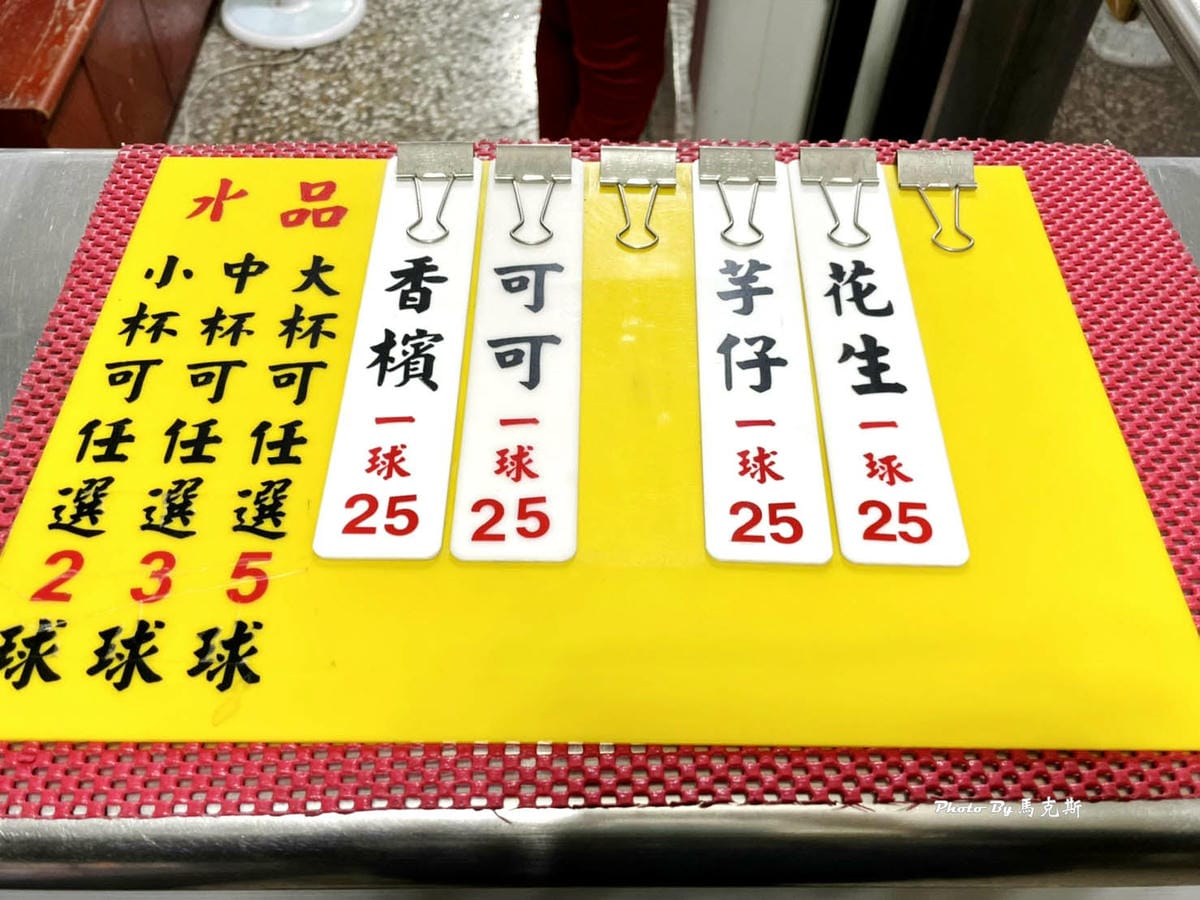 水品
大杯可任選5球
中杯可任選3球
小杯可任選2球
香檳一球25
可可一球25
芋仔一球25
花生一球25
Photo By 馬克斯